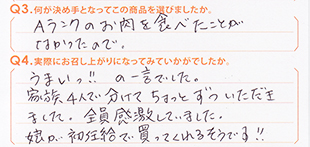 Q3.何が決め手となってこの商品を選びましたか。
Aランクのお肉を食べたことが
なかったので。
Q4.実際にお召し上がりになってみていかがでしたか。
うまいっ!! の一言でした。
家族4人で分けてちょっとずついただき
ました。全員感激していました。
娘が初任給で買ってくれるそうです!!